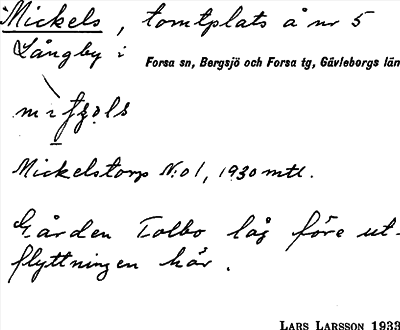 Mickels, tomtplats å nr 5
Långby i
Forsa sn, Bergsjö och Forsa tg, Gävleborgs län
Mickelstorp N:o 1, 1930 mtl.
Gården Tolbo låg före ut-
flyttningen här.
LARS LARSSON 1933